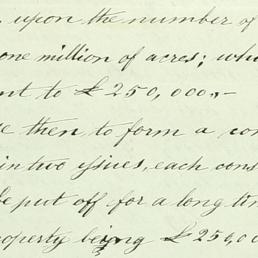 upon the number of
one million of acres; wh
nt to £250,000,-
e then to form a con
in two issues, each cons
be put off for a long tim
roperty being £250,00